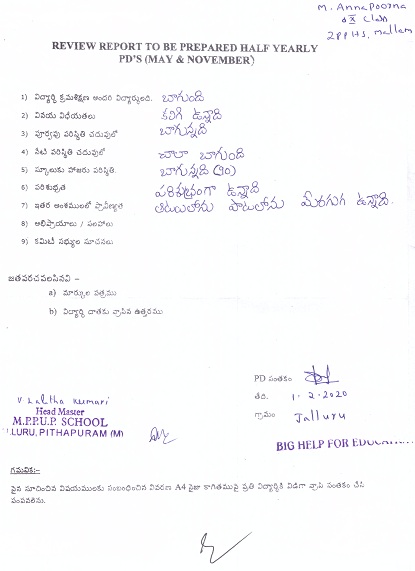 M. Annapoorna
IX class
ZPPHS, Mallam
REVIEW REPORT TO BE PREPARED HALF YEARLY
PD'S (MAY & NOVEMBER)
1) విద్యార్థి క్రమశిక్షణ అందరి విద్యార్థులది. బాగుంది
2) వినయ విధేయతలు కలిగి ఉన్నాది
3) పూర్వపు పరిస్థితి చదువులో బాగున్నది
4) నేటి పరిస్థితి చదువులో చాలా బాగుంది
5) స్కూలుకు హాజరు పరిస్థితి. బాగున్నది
6) పరిశుభ్రత పరిశుభ్రంగా ఉన్నాది
7) ఇతర అంశములలో ప్రావీణ్యత పాటలోను ఉన్నాది.
8) అభిప్రాయాలు / సలహాలు
9) కమిటీ సభ్యుల సూచనలు
జతపరచవలసినవి -
a) మార్కుల పత్రము
b) విద్యార్థి దాతకు వ్రాసిన ఉత్తరము
PD సంతకం
తేది. 1-2-2020
గ్రామం Jalluru
V Lalitha Kumari
Head Master
M.P.P.U.P. SCHOOL
LLURU, PITHAPURAM (M)
BIG HELP FOR EDUCATION
గమనిక:-
పైన సూచించిన విషయములకు సంబంధించిన వివరణ A4 సైజు కాగితముపై ప్రతి విద్యార్థికి విడిగా వ్రాసి సంతకం చేసి
పంపవలెను.